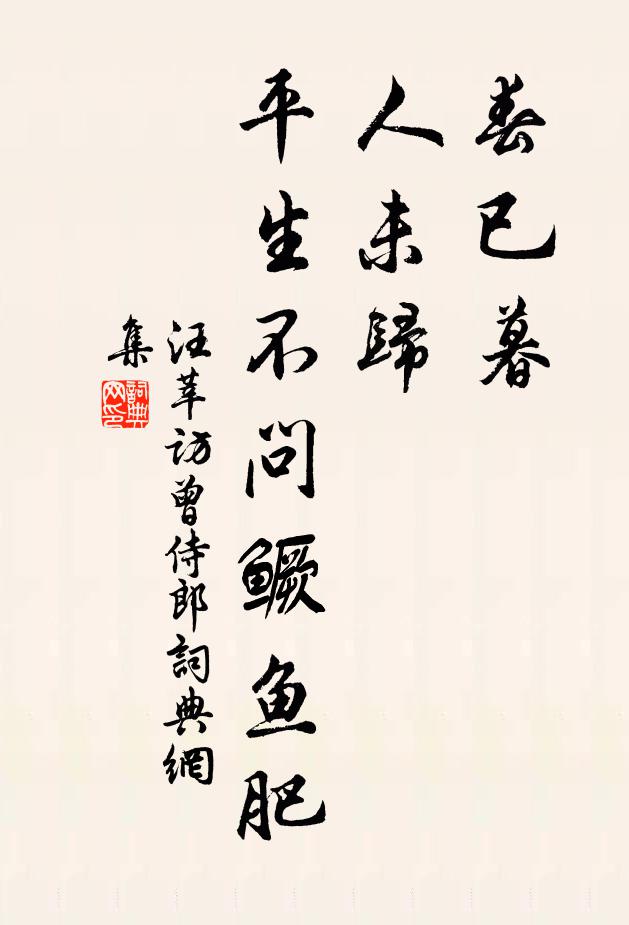 春已暮
人未歸
平生不问鳜鱼肥
汪莘访曾侍郎詞典網
集
詞典
网印